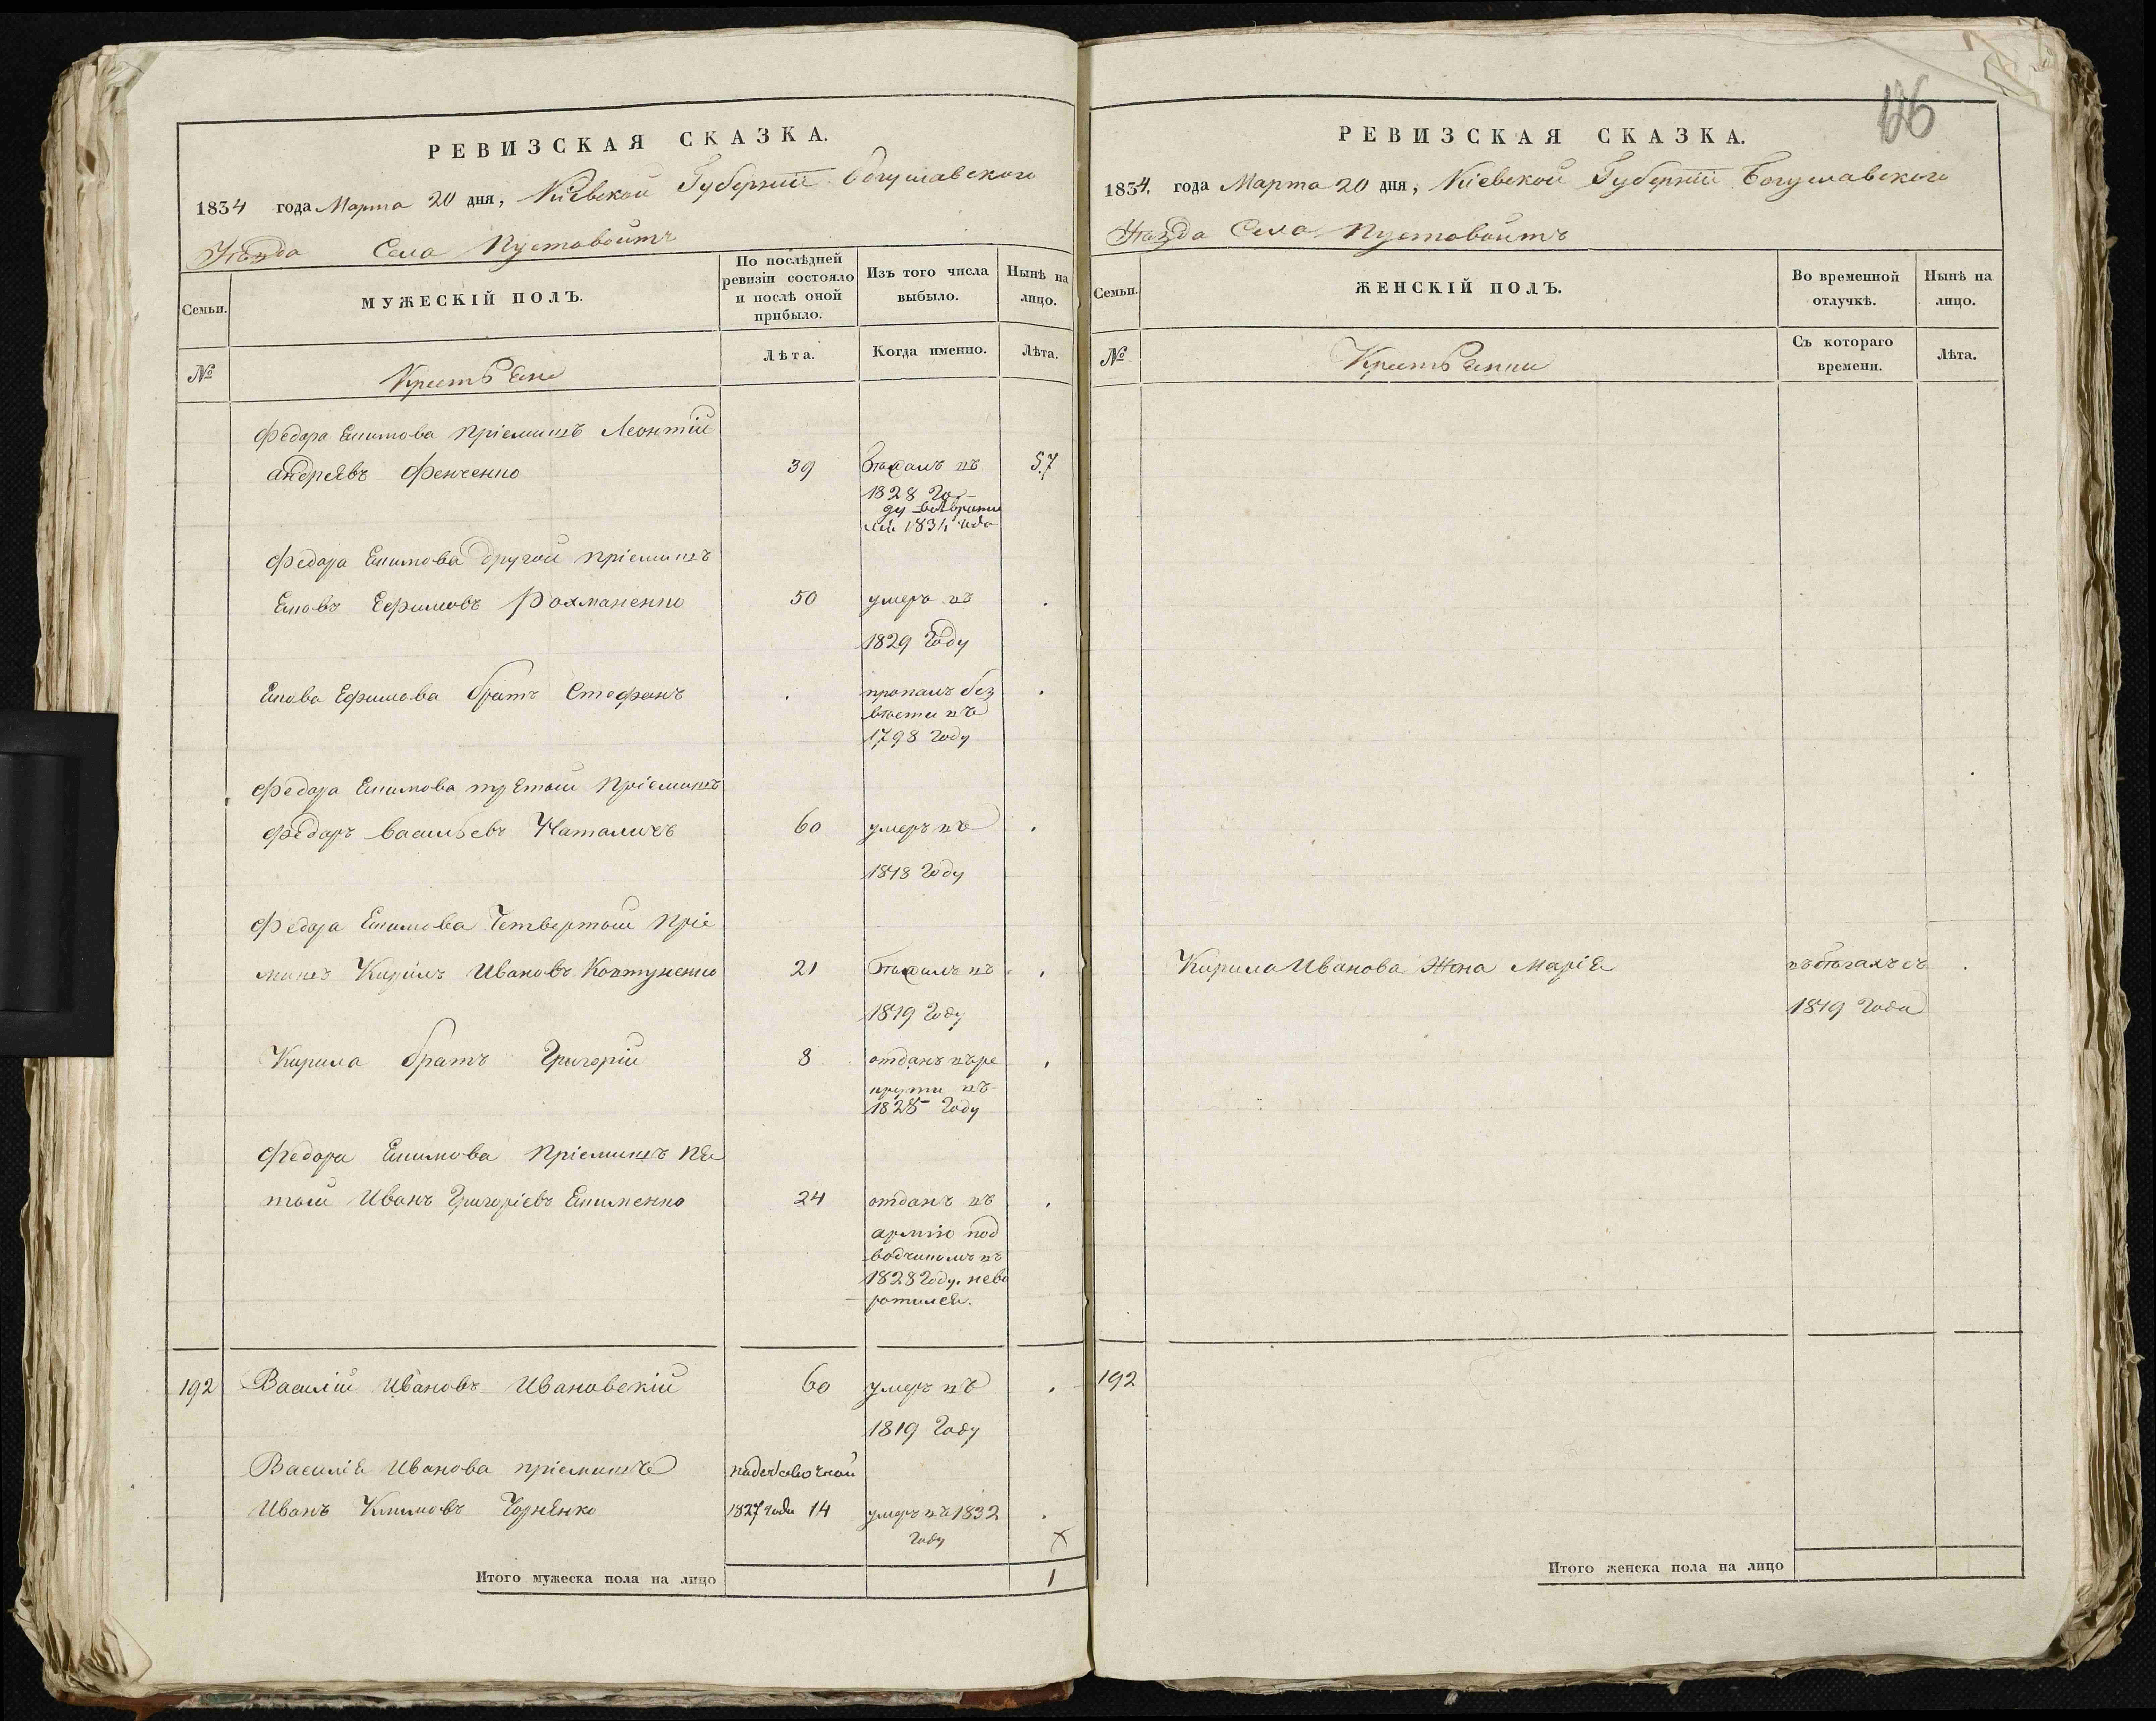 РЕВИЗСКАЯ СКАЗКА.
1834 года Марта 20 дня, Кіевской Губерніи Богуславского
Уѣзда Села Пустовойтъ
Семьи.
МУЖЕСКІЙ ПОЛЪ.
По послѣдней ревизіи состояло и послѣ оной прибыло.
Изъ того числа выбыло.
Нынѣ на лицо.
№
Крестьяне
Лѣта.
Когда именно.
Лѣта.
Федора Екимова пріемишъ Леонтій
андреѣвъ Фенченко 39 бѣжалъ въ 57
1828 Го-
ду возврати
лся 1834 года
Федора Екимова другой пріемишъ
Яковъ Ефимовъ Рохманенко 50 умеръ въ .
1829 Году
Якова Ефимова братъ Стефанъ . пропалъ без .
вѣсти въ
1798 Году
Федора Екимова третой Пріемишъ
Федоръ васильевъ 60 умеръ въ .
1818 Году
Федора Екимова Четвертой Пріе
мишъ Кирилъ Ивановъ Ковтуненко 21 бѣжалъ въ .
1819 Году
Кирила братъ Григорій 8 отданъ въ ре .
круты въ
1828 Году
Федора Екимова Пріемишъ Пя
той Иванъ Григоріевъ Екименко 24 отданъ въ .
армію под
водчикомъ въ
1828 Году. нево
ротился.
192 Василій Ивановъ Ивановскій 60 умеръ въ .
1819 Году
Василія Иванова пріемишъ
Иванъ Климовъ Чорненко 1827 года 14 умеръ въ 1832 .
Году
Итого мужеска пола на лицо 1
126
РЕВИЗСКАЯ СКАЗКА.
1834. года Марта 20 дня, Кіевской Губерніи Богуславского
Уѣзда Села Пустовойтъ
Семьи.
ЖЕНСКІЙ ПОЛЪ.
Во временной отлучкѣ.
Нынѣ на лицо.
№
Крестьянки
Съ котораго времени.
Лѣта.
Кирила Иванова Жена Марія въ бѣгахъ съ .
1819 Года
192
Итого женска пола на лицо